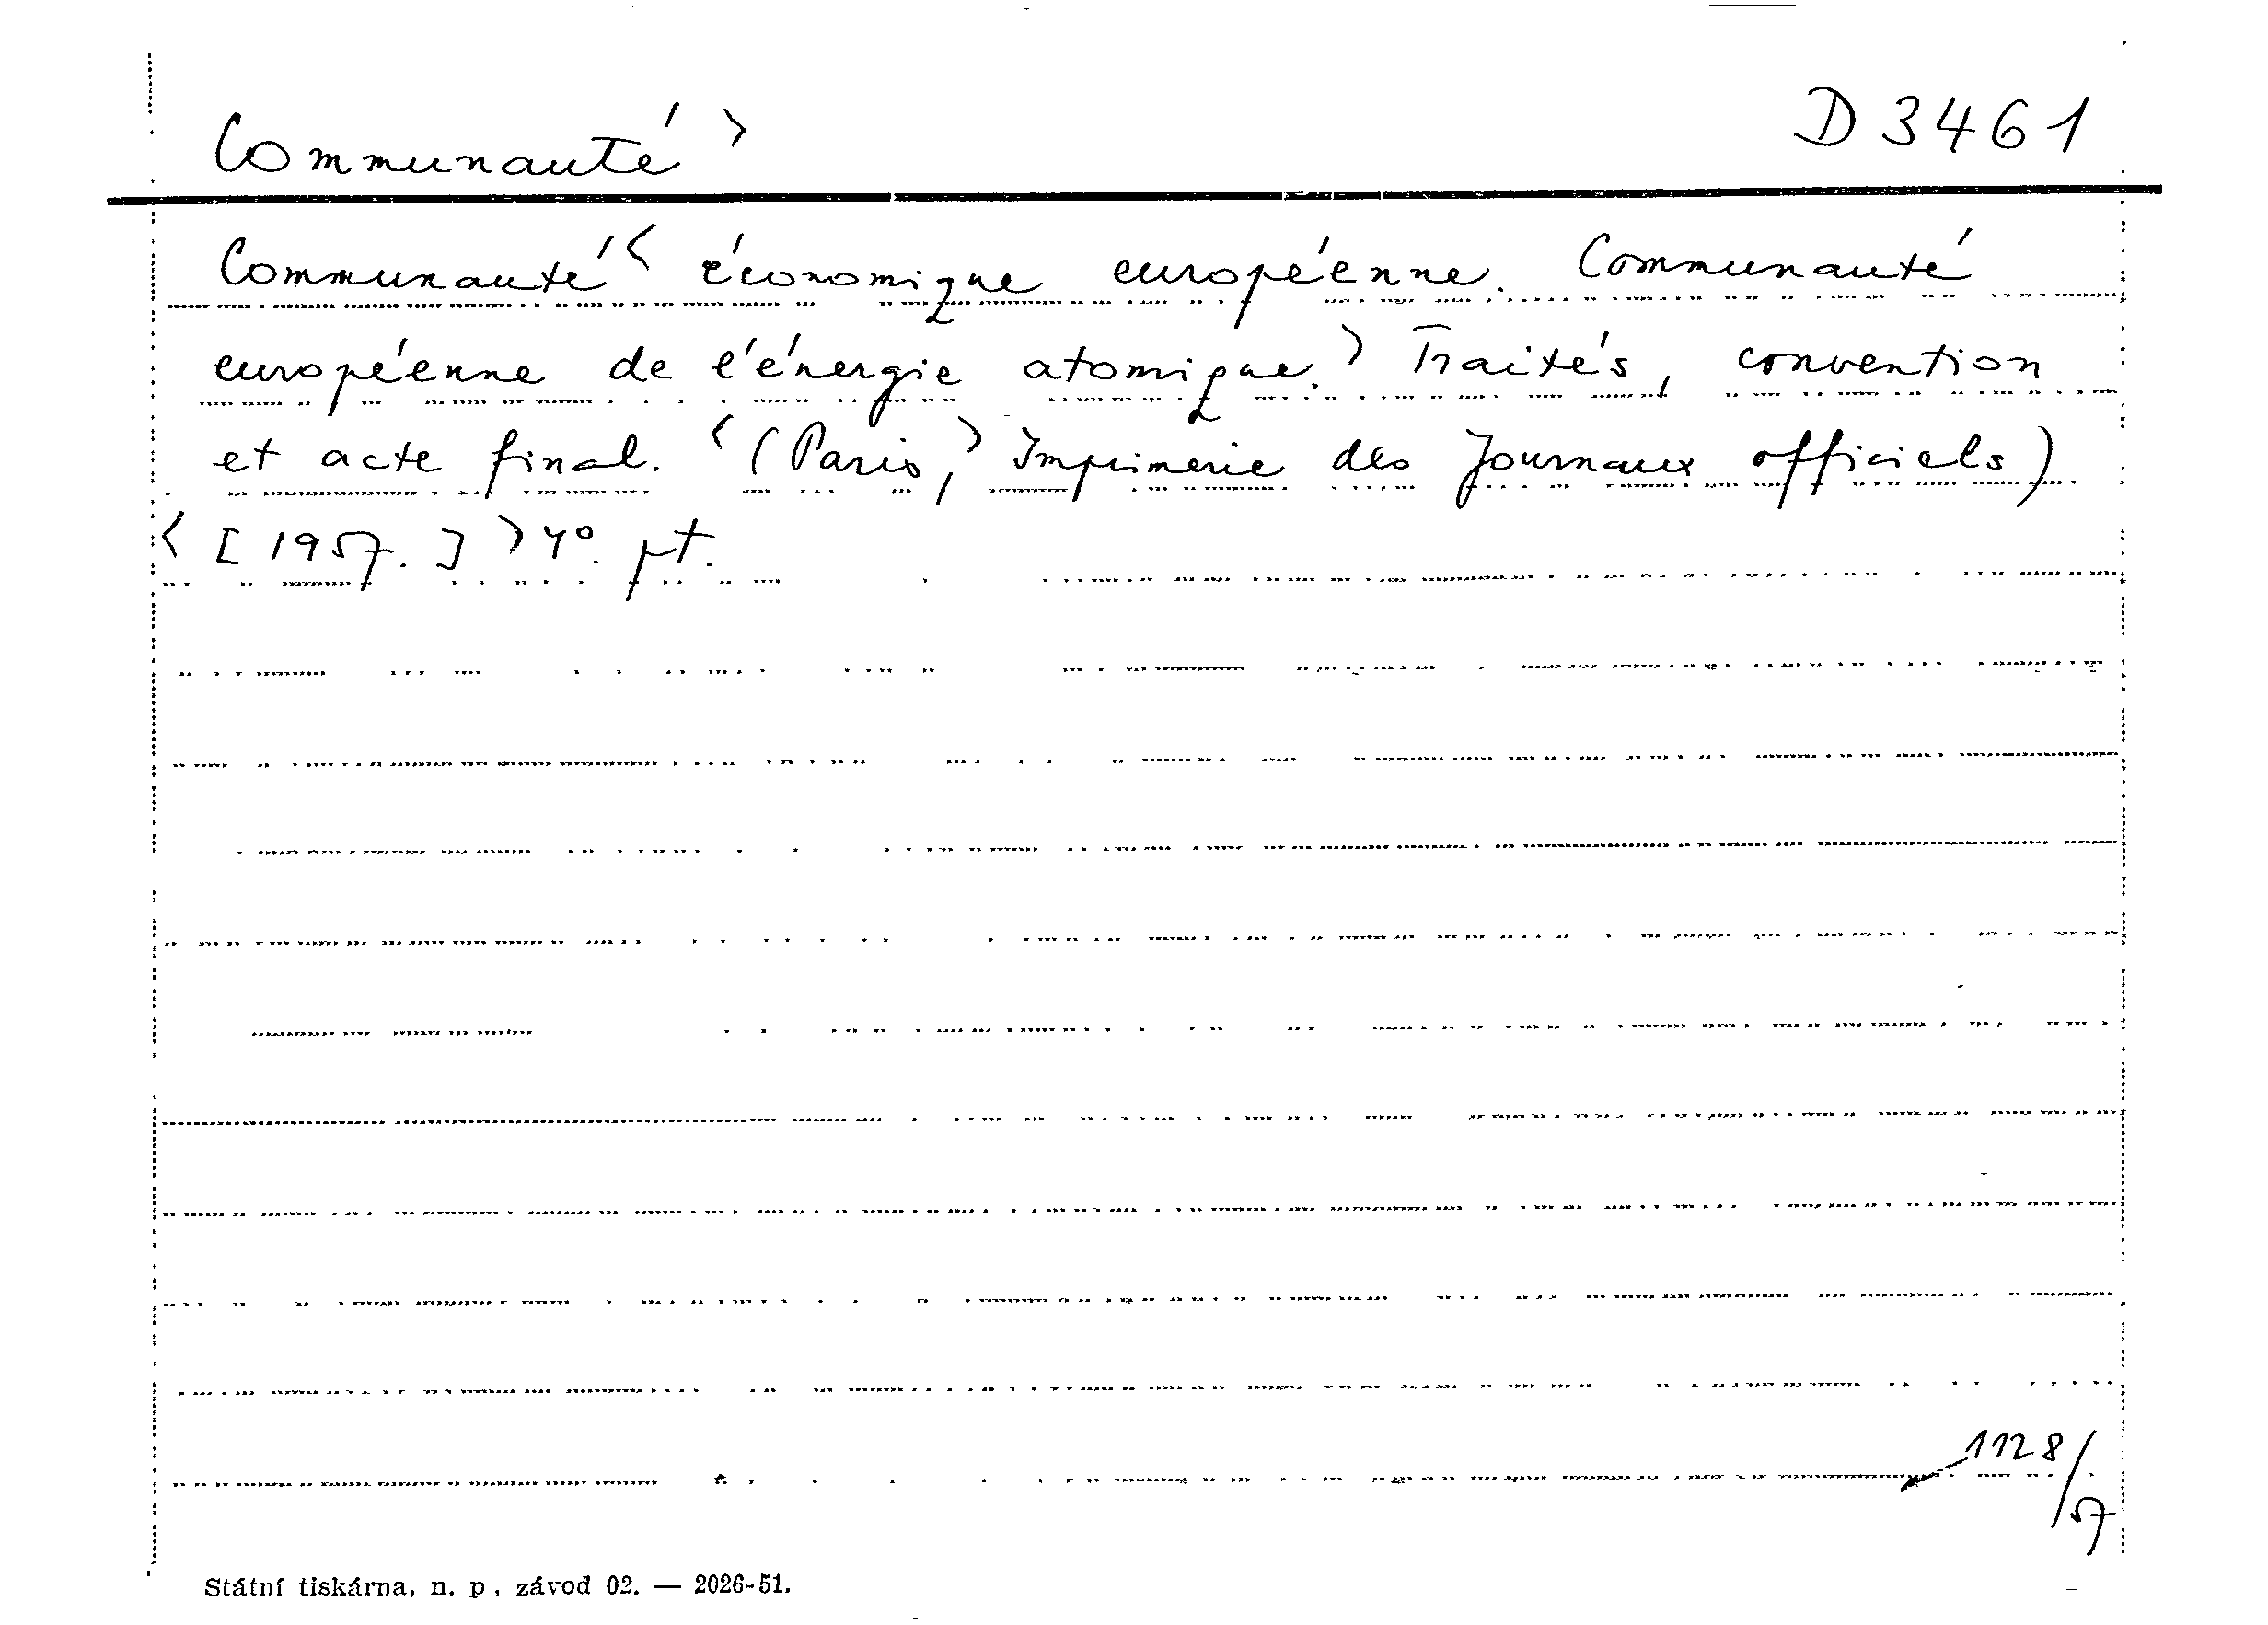 Communauté > D 3461
Communauté < économique européenne. Communauté
européenne de l'énergie atomique. > Traités, convention
et acte final. < (Paris, > Imprimerie des Journaux officiels)
< [1957.] > 4°. pt.
1128/57
Státní tiskárna, n. p., závod 02. — 2026-51.